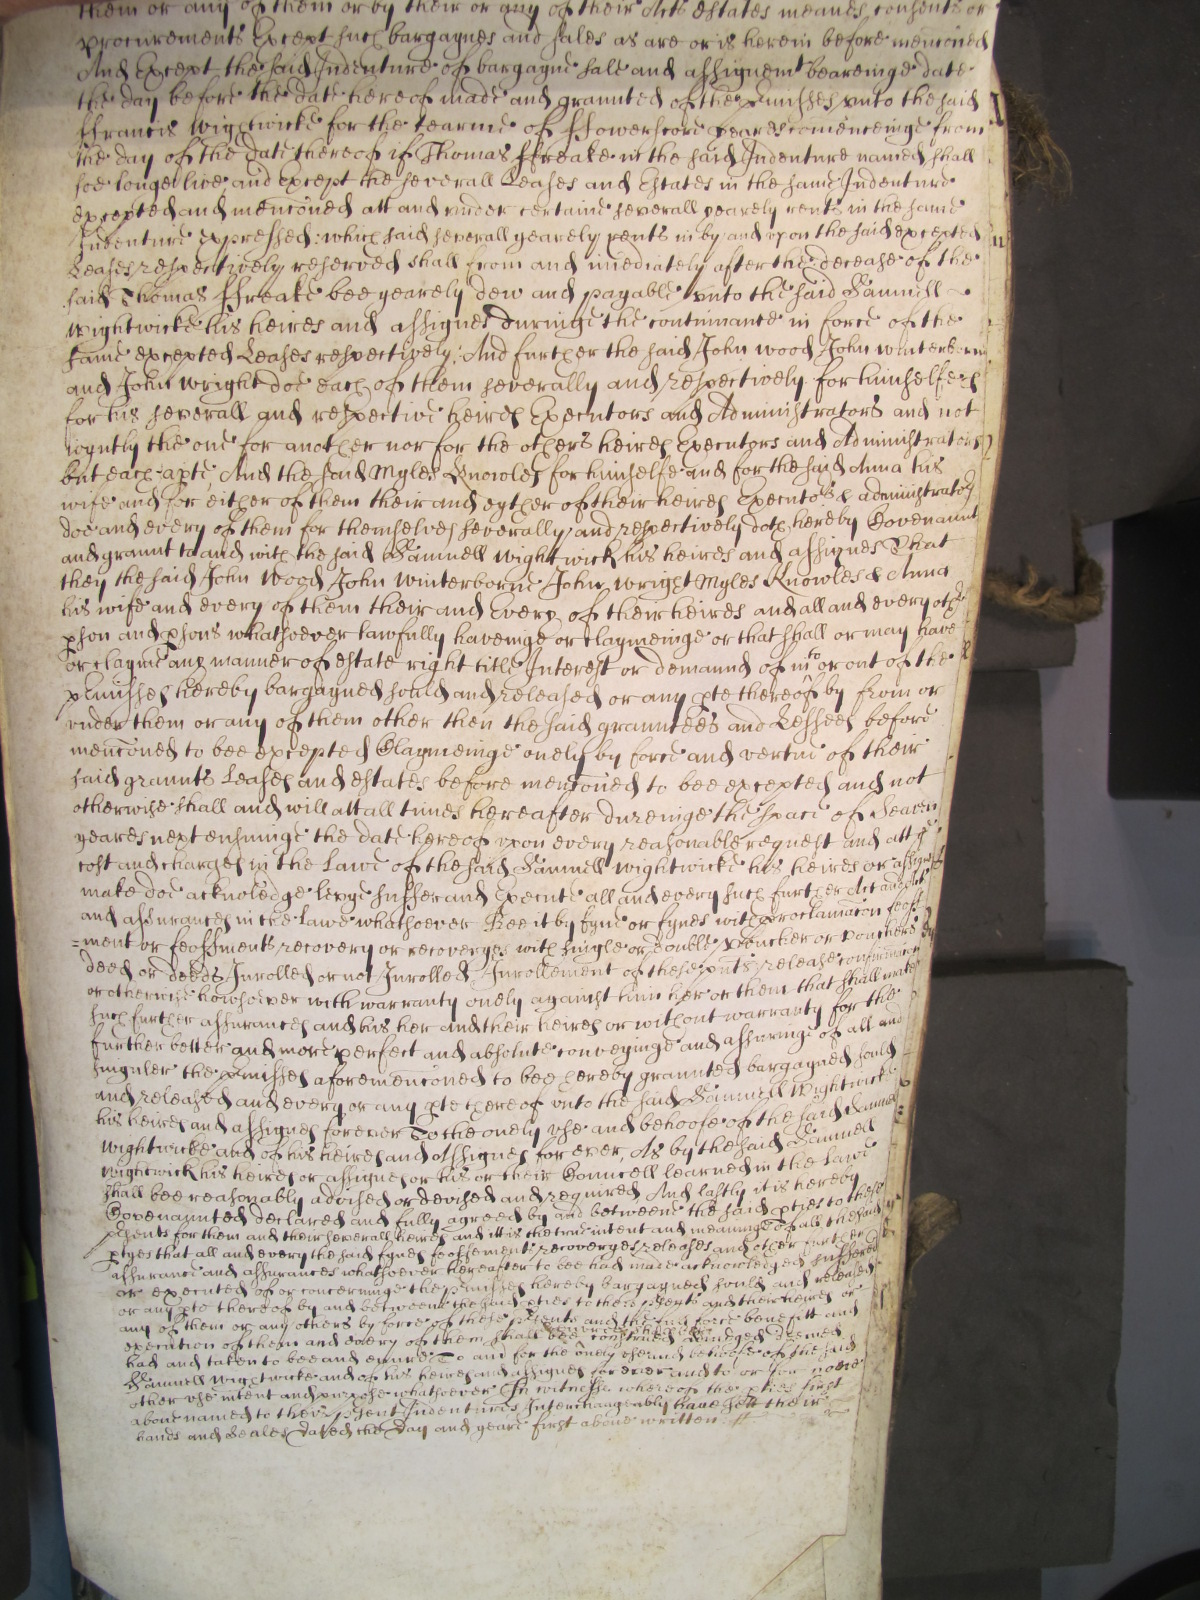 them or any of them or by their or any of their Acts estates meanes consents or
procurements Except such bargagnes and sales as are or is herein before menconed
And Except the said Indenture of bargagne sale and assignemt beareinge date
the day before the date hereof made and graunted of the pmisses vnto the said
ffrancis Wightwicke for the tearme of ffowerscore yeares comenceinge from
the day of the date thereof if Thomas ffreake in the said Indenture named shall
soe longe live and except the severall Leases and Estates in the same Indenture
excepted and menconed att and vnder certaine severall yearely rents in the same
Indenture expressed: which said severall yearely rents in by and vpon the said excepted
Leases respectively reserved shall from and imediately after the decease of the
said Thomas ffreake bee yearely dew and payable vnto the said Samuell
Wightwicke his heires and assignes duringe the continuance in force of the
same excepted Leases respectively: And further the said John Wood John Winterborne
and John Wright doe each of them severally and respectively for himselfe &
for his severall and respective heires Executors and Administrators and not
joyntly the one for another nor for the others heires Executors and Administrators
but each apte, And the said Myles Knowles for himselfe and for the said Anna his
wife and for either of them their and eyther of their heires Executors & administrators
doe and every of them for themselves severally and respectively doth hereby Covenaunt
and graunt to and with the said Samuell Wightwick his heires and assignes That
they the said John Wood John Winterborne John Wright Myles Knowles & Anna
his wife and every of them their and Every of their heires and all and every other
pson and psons whatsoever lawfully haveinge or claymeinge or that shall or may have
or clayme any manner of estate right title Interest or demaund of in to or out of the
pmisses hereby bargagned sould and released or any pte thereof by from or
vnder them or any of them other then the said grauntees and Lessees before
menconed to bee excepted Claymeinge onely by force and vertue of their
said graunts Leases and estates before menconed to bee excepted and not
otherwise shall and will att all times hereafter dureinge the space of Seaven
yeares next ensuinge the date hereof vpon every reasonable request and att ye
cost and charges in the Lawe of the said Samuell Wightwicke his heires or assignes
make doe acknoledge levye suffer and Execute all and every such further Act and Acts
and assurances in the Lawe whatsoever Bee it by fyne or fynes with proclamacon feoff
=ment or feoffments recovery or recoveryes with single or double voucher or vouchers by
deed or deeds Inrolled or not Inrolled Inrollement of these pnts release confirmacon
or otherwise howsoever with warranty onely against him her or them that shall make
such further assurances and his her and their heires or without warranty for the
further better and more perfect and absolute conveyinge and assuringe of all and
singuler the pmisses aforemenconed to bee hereby graunted bargagned sould
and released and every or any pte thereof vnto the said Samuell Wightwicke
his heires and assignes forever To the onely vse and behoofe of the said Samuell
Wightwicke and of his heires and Assignes for ever, As by the said Samuell
Wightwick his heires or assignes or his or their Councell learned in the Lawe
shall bee reasonably advised or devised and required, And lastly it is hereby
Covenaunted declared and fully agreed by and betweene the said pties to these
psents for them and their severall heires and itt is the true intent and meaninge of all the said
ptyes that all and every the said fynes feoffements recoveryes releases and other further
assurance and assurances whatsoever hereafter to bee had made acknowledged suffered
or executed of or concerninge the pmisses hereby bargagned sould and released
or any pte thereof by and betweene the said pties to these psents and their heires or
any of them or any others by force of these psents and the full force benefitt and
execution of them and every of them shall bee construed adiudged deemed
had and taken to bee and enure To and for the onely vse and behoofe of the said
Samuell Wightwicke and of his heires and assignes for ever and to or for none
other vse intent and purpose whatsoever In witnesse whereof the pties first
above named to these psent Indentures Interchangeably have sett their
hands and Seales Dated the day and yeare first above written